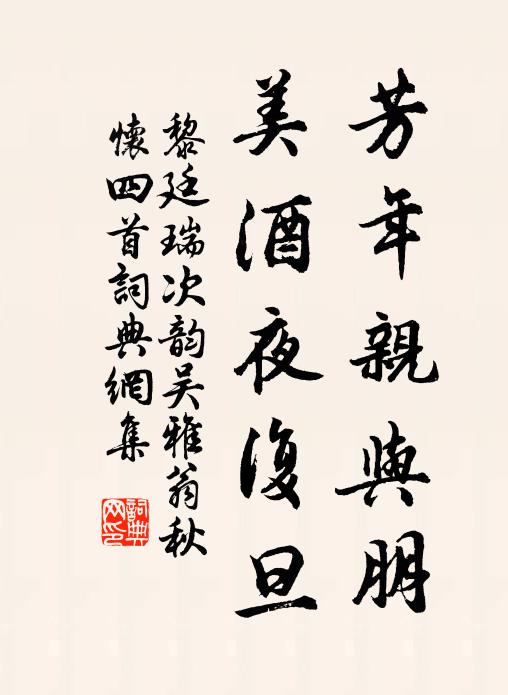 芳年親與朋
美酒夜復旦
黎廷瑞次韵吴雅翁秋
懷四首詞典網集
詞典
网印